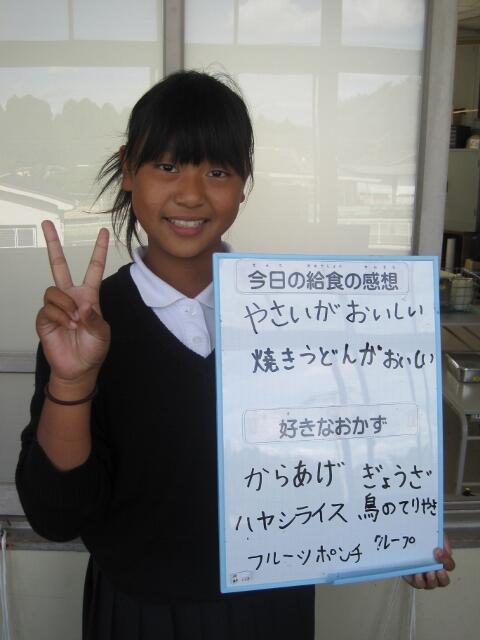 今日の給食の感想
やさいがおいしい
焼きうどんがおいしい
好きなおかず
からあげ ぎょうざ
ハヤシライス 鳥のてりやき
フルーツポンチ クレープ